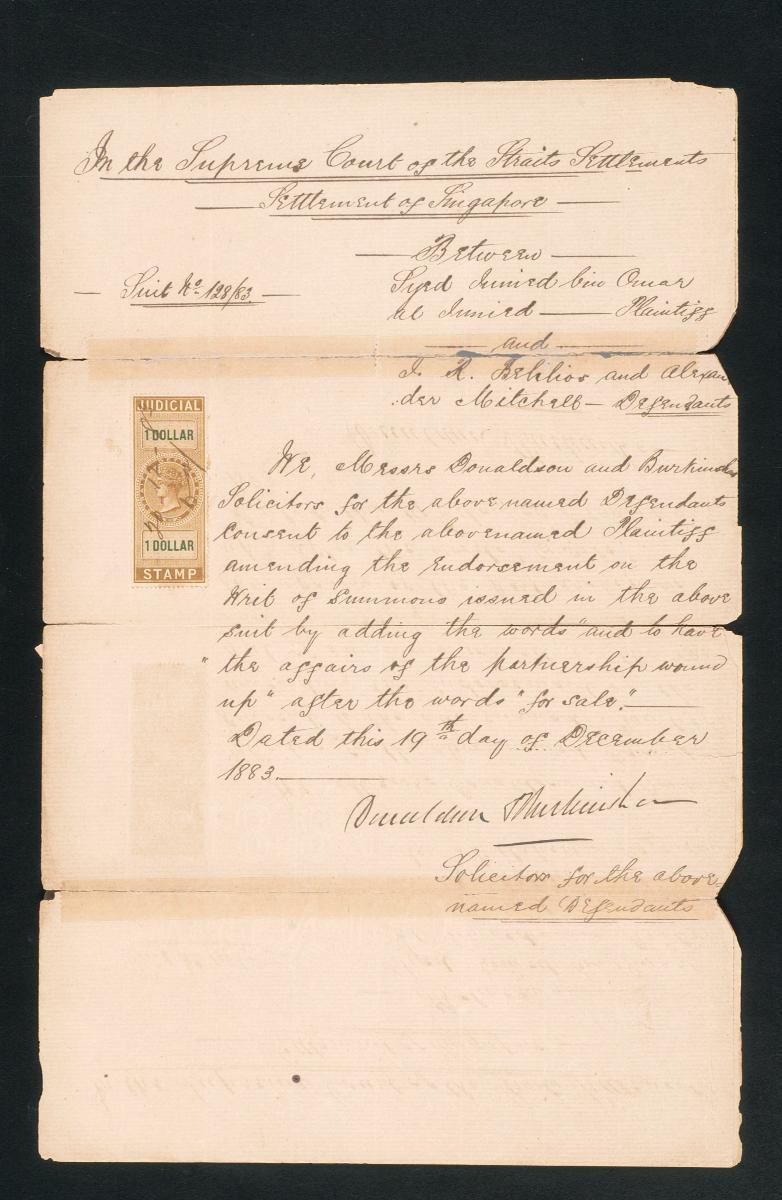 In the Supreme Court of the Straits Settlements
Settlement of Singapore
Between
Suit No. 128/83.
Syed Junied bin Omar
al Junied — Plaintiff
and
I. R. Belilios and Alexan
der Mitchell — Defendants
JUDICIAL
1 DOLLAR
1 DOLLAR
STAMP
We, Messrs Donaldson and Burkinshaw
Solicitors for the above named Defendants
consent to the abovenamed Plaintiff
amending the Endorsement on the
Writ of Summons issued in the above
suit by adding the words "and to have
" the affairs of the partnership wound
up" after the words "for sale".
Dated this 19th day of December
1883.
Donaldson & Burkinshaw
Solicitors for the above-
named Defendants